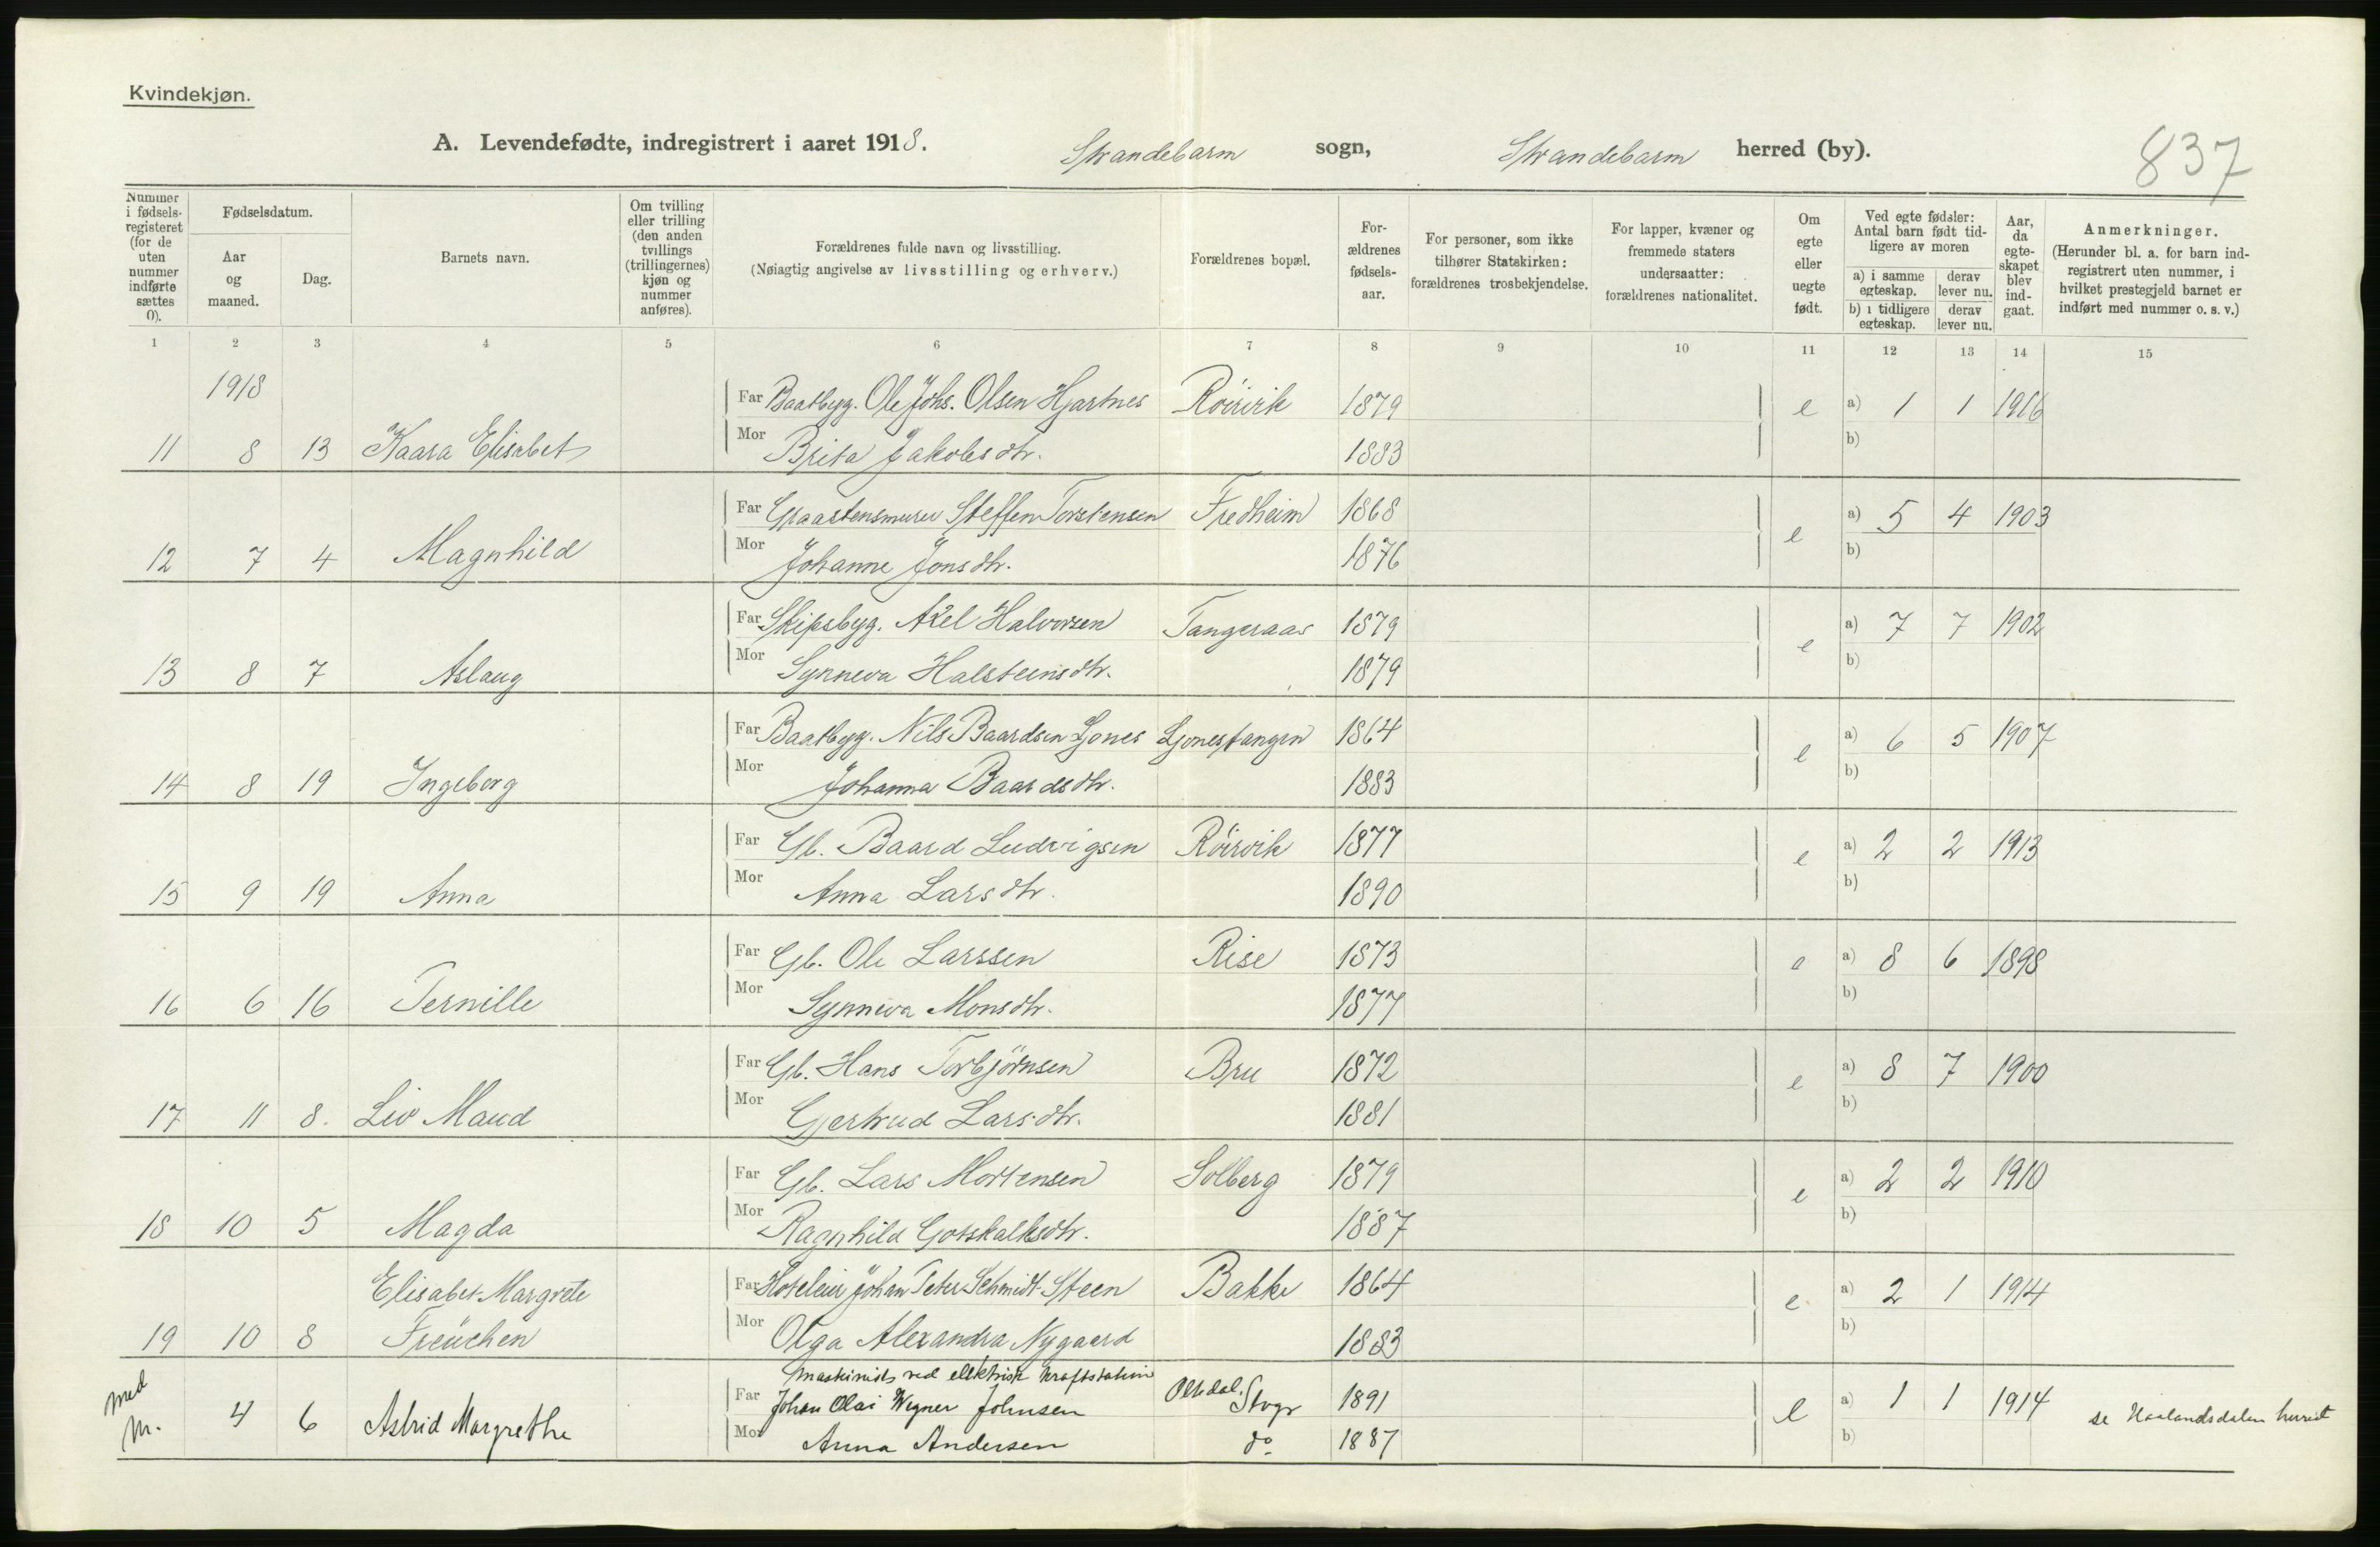 Kvindekjøn.
A. Levendefødte, indregistrert i aaret 1918. Strandebarm sogn, Strandebarm herred (by). 837
Nummer i fødsels-registeret (for de uten nummer indførte sættes 0).
Fødselsdatum.
Aar og maaned.
Dag.
Barnets navn.
Om tvilling eller trilling (den anden tvillings (trillingernes) kjøn og nummer anføres).
Forældrenes fulde navn og livsstilling.
(Nøiagtig angivelse av livsstilling og erhverv.)
Forældrenes bopæl.
For-ældrenes fødsels-aar.
For personer, som ikke tilhører Statskirken: forældrenes trosbekjendelse.
For lapper, kvæner og fremmede staters undersaatter: forældrenes nationalitet.
Om egte eller uegte født.
Ved egte fødsler: Antal barn født tid-ligere av moren
a) i samme egteskap. derav lever nu.
b) i tidligere egteskap. derav lever nu.
Aar, da egte-skapet blev ind-gaat.
Anmerkninger.
(Herunder bl. a. for barn ind-registrert uten nummer, i hvilket prestegjeld barnet er indført med nummer o. s. v.)
1 2 3 4 5 6 7 8 9 10 11 12 13 14 15
1918
Far Baatbyg. Ole Johs. Olsen Hjartnes Röirvik 1879 e a) 1 1 1916
11 8 13 Kaara Elisabet Mor Brita Jakobsdtr. 1883 b)
Far Graastensmurer Steffen Torstensen Fredheim 1868 e a) 5 4 1903
12 7 4 Magnhild Mor Johanne Jonsdtr. 1876 b)
Far Skipsbyg. Axel Halvorsen Tangeraas 1879 e a) 7 7 1902
13 8 7 Aslaug Mor Synneva Halsteinsdtr. 1879 b)
Far Baatbyg. Nils Baardsen Ljones Ljonestangen 1864 e a) 6 5 1907
14 8 19 Ingeborg Mor Johanna Baardsdtr. 1883 b)
Far Gb. Baard Ludvigsen Röirvik 1877 e a) 2 2 1913
15 9 19 Anna Mor Anna Larsdtr. 1890 b)
Far Gb. Ole Larssen Rise 1873 e a) 8 6 1898
16 6 16 Pernille Mor Synneva Monsdtr. 1877 b)
Far Gb. Hans Torbjörnsen Bru 1872 e a) 8 7 1900
17 11 8. Liv Maud Mor Gjertrud Larsdtr. 1881 b)
Far Gb. Lars Mortensen Solberg 1879 e a) 2 2 1910
18 10 5 Magda Mor Ragnhild Gotskalksdtr. 1887 b)
Elisabet Margrete Far Hoteleier Johan Peter Schmidt-Steen Bakke 1864 e a) 2 1 1914
19 10 8 Freuchen Mor Olga Alexandra Nygaard 1883 b)
Maskinist ved elektrisk kraftstation
med Far Johan Olai Wegner Johnsen Oltedal. Stvgr 1891 e a) 1 1 1914 se Haalandsdalen herred
m. 4 6 Astrid Margrethe Mor Anna Andersen do 1887 b)